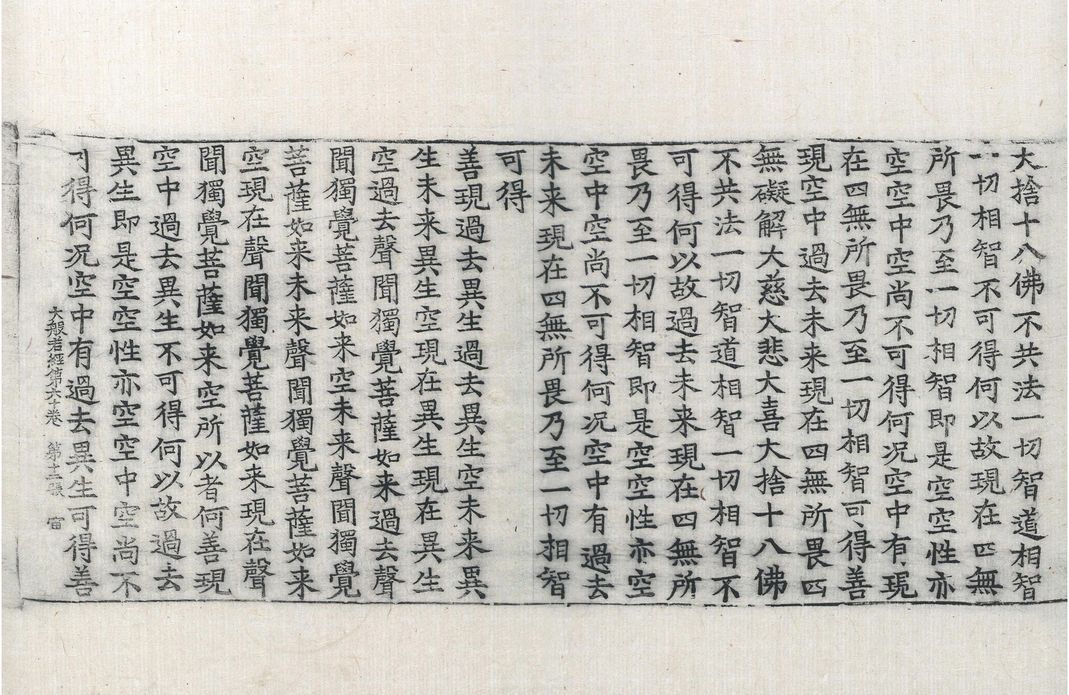 大捨十八佛不共法一切智道相智
一切相智不可得何以故現在四無
所畏乃至一切相智即是空空性亦
空空中空尚不可得何况空中有現
在四無所畏乃至一切相智可得善
現空中過去未来現在四無所畏四
無礙解大慈大悲大喜大捨十八佛
不共法一切智道相智一切相智不
可得何以故過去未来現在四無所
畏乃至一切相智即是空空性亦空
空中空尚不可得何况空中有過去
未来現在四無所畏乃至一切相智
可得
善現過去異生過去異生空未来異
生未来異生空現在異生現在異生
空過去聲聞獨覺菩薩如来過去聲
聞獨覺菩薩如来空未来聲聞獨覺
菩薩如来未来聲聞獨覺菩薩如来
空現在聲聞獨覺菩薩如来現在聲
聞獨覺菩薩如来空所以者何善現
空中過去異生不可得何以故過去
異生即是空空性亦空空中空尚不
可得何况空中有過去異生可得善
大般若經第六十卷 第十二張 宙